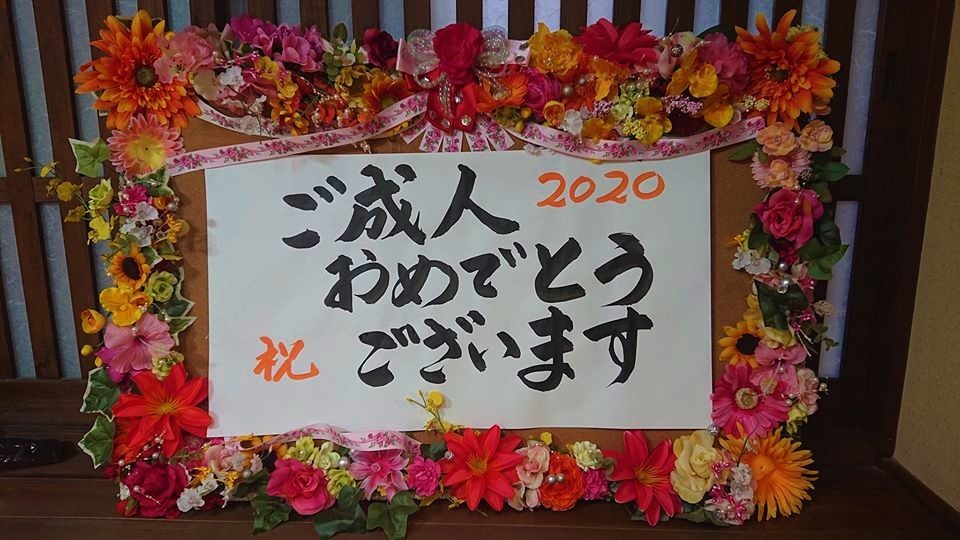 ご成人 2020
おめでとう
祝 ございます